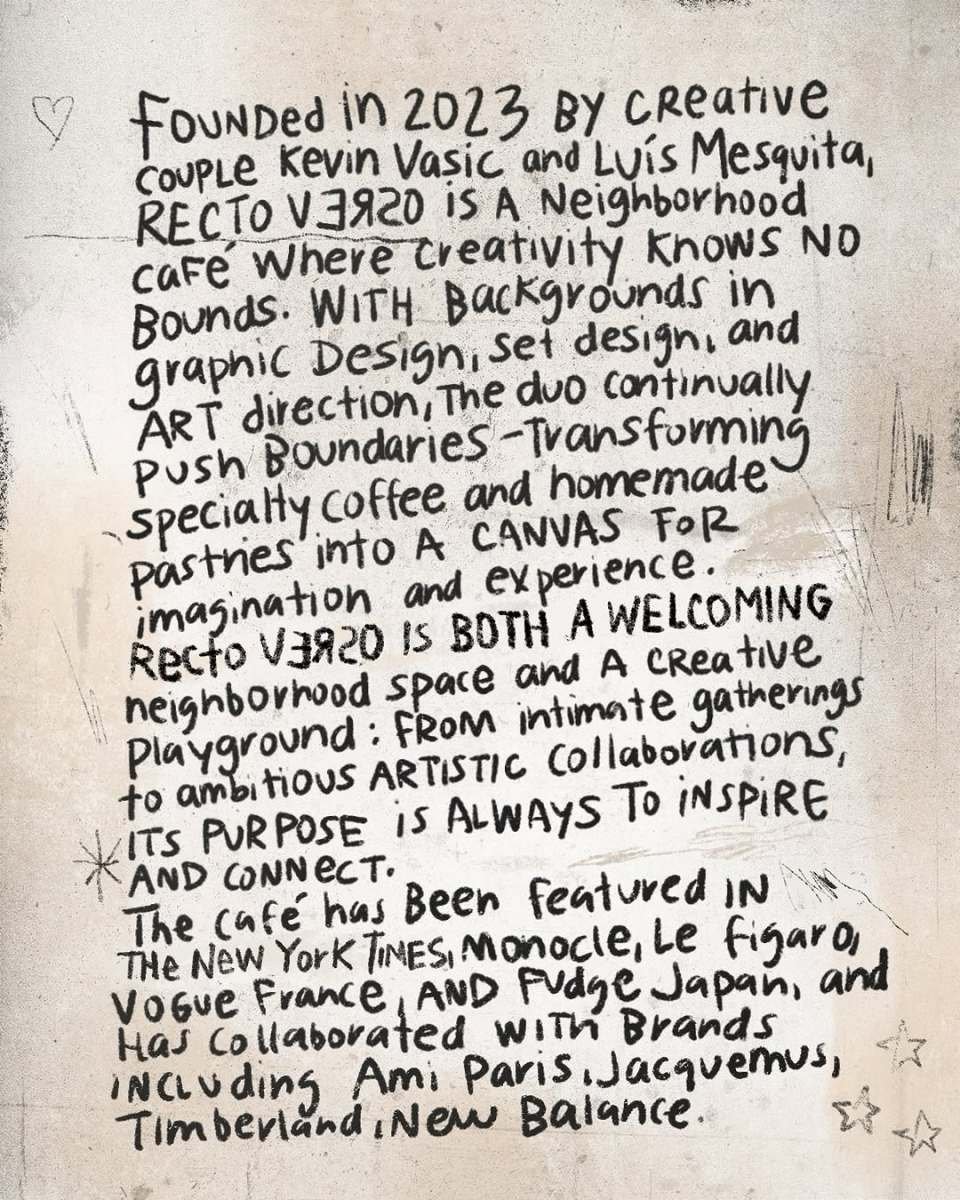 Founded in 2023 by creative
couple Kevin Vasic and Luís Mesquita,
RECTO VERSO is a neighborhood
café where creativity knows no
bounds. With backgrounds in
graphic design, set design, and
art direction, the duo continually
push boundaries - transforming
specialty coffee and homemade
pastries into a canvas for
imagination and experience.
Recto VERSO is both a welcoming
neighborhood space and a creative
playground: from intimate gatherings
to ambitious artistic collaborations,
its purpose is always to inspire
and connect.
The café has been featured in
The New York Times, Monocle, Le Figaro,
Vogue France, and Fudge Japan, and
has collaborated with brands
including Ami Paris, Jacquemus,
Timberland, New Balance.